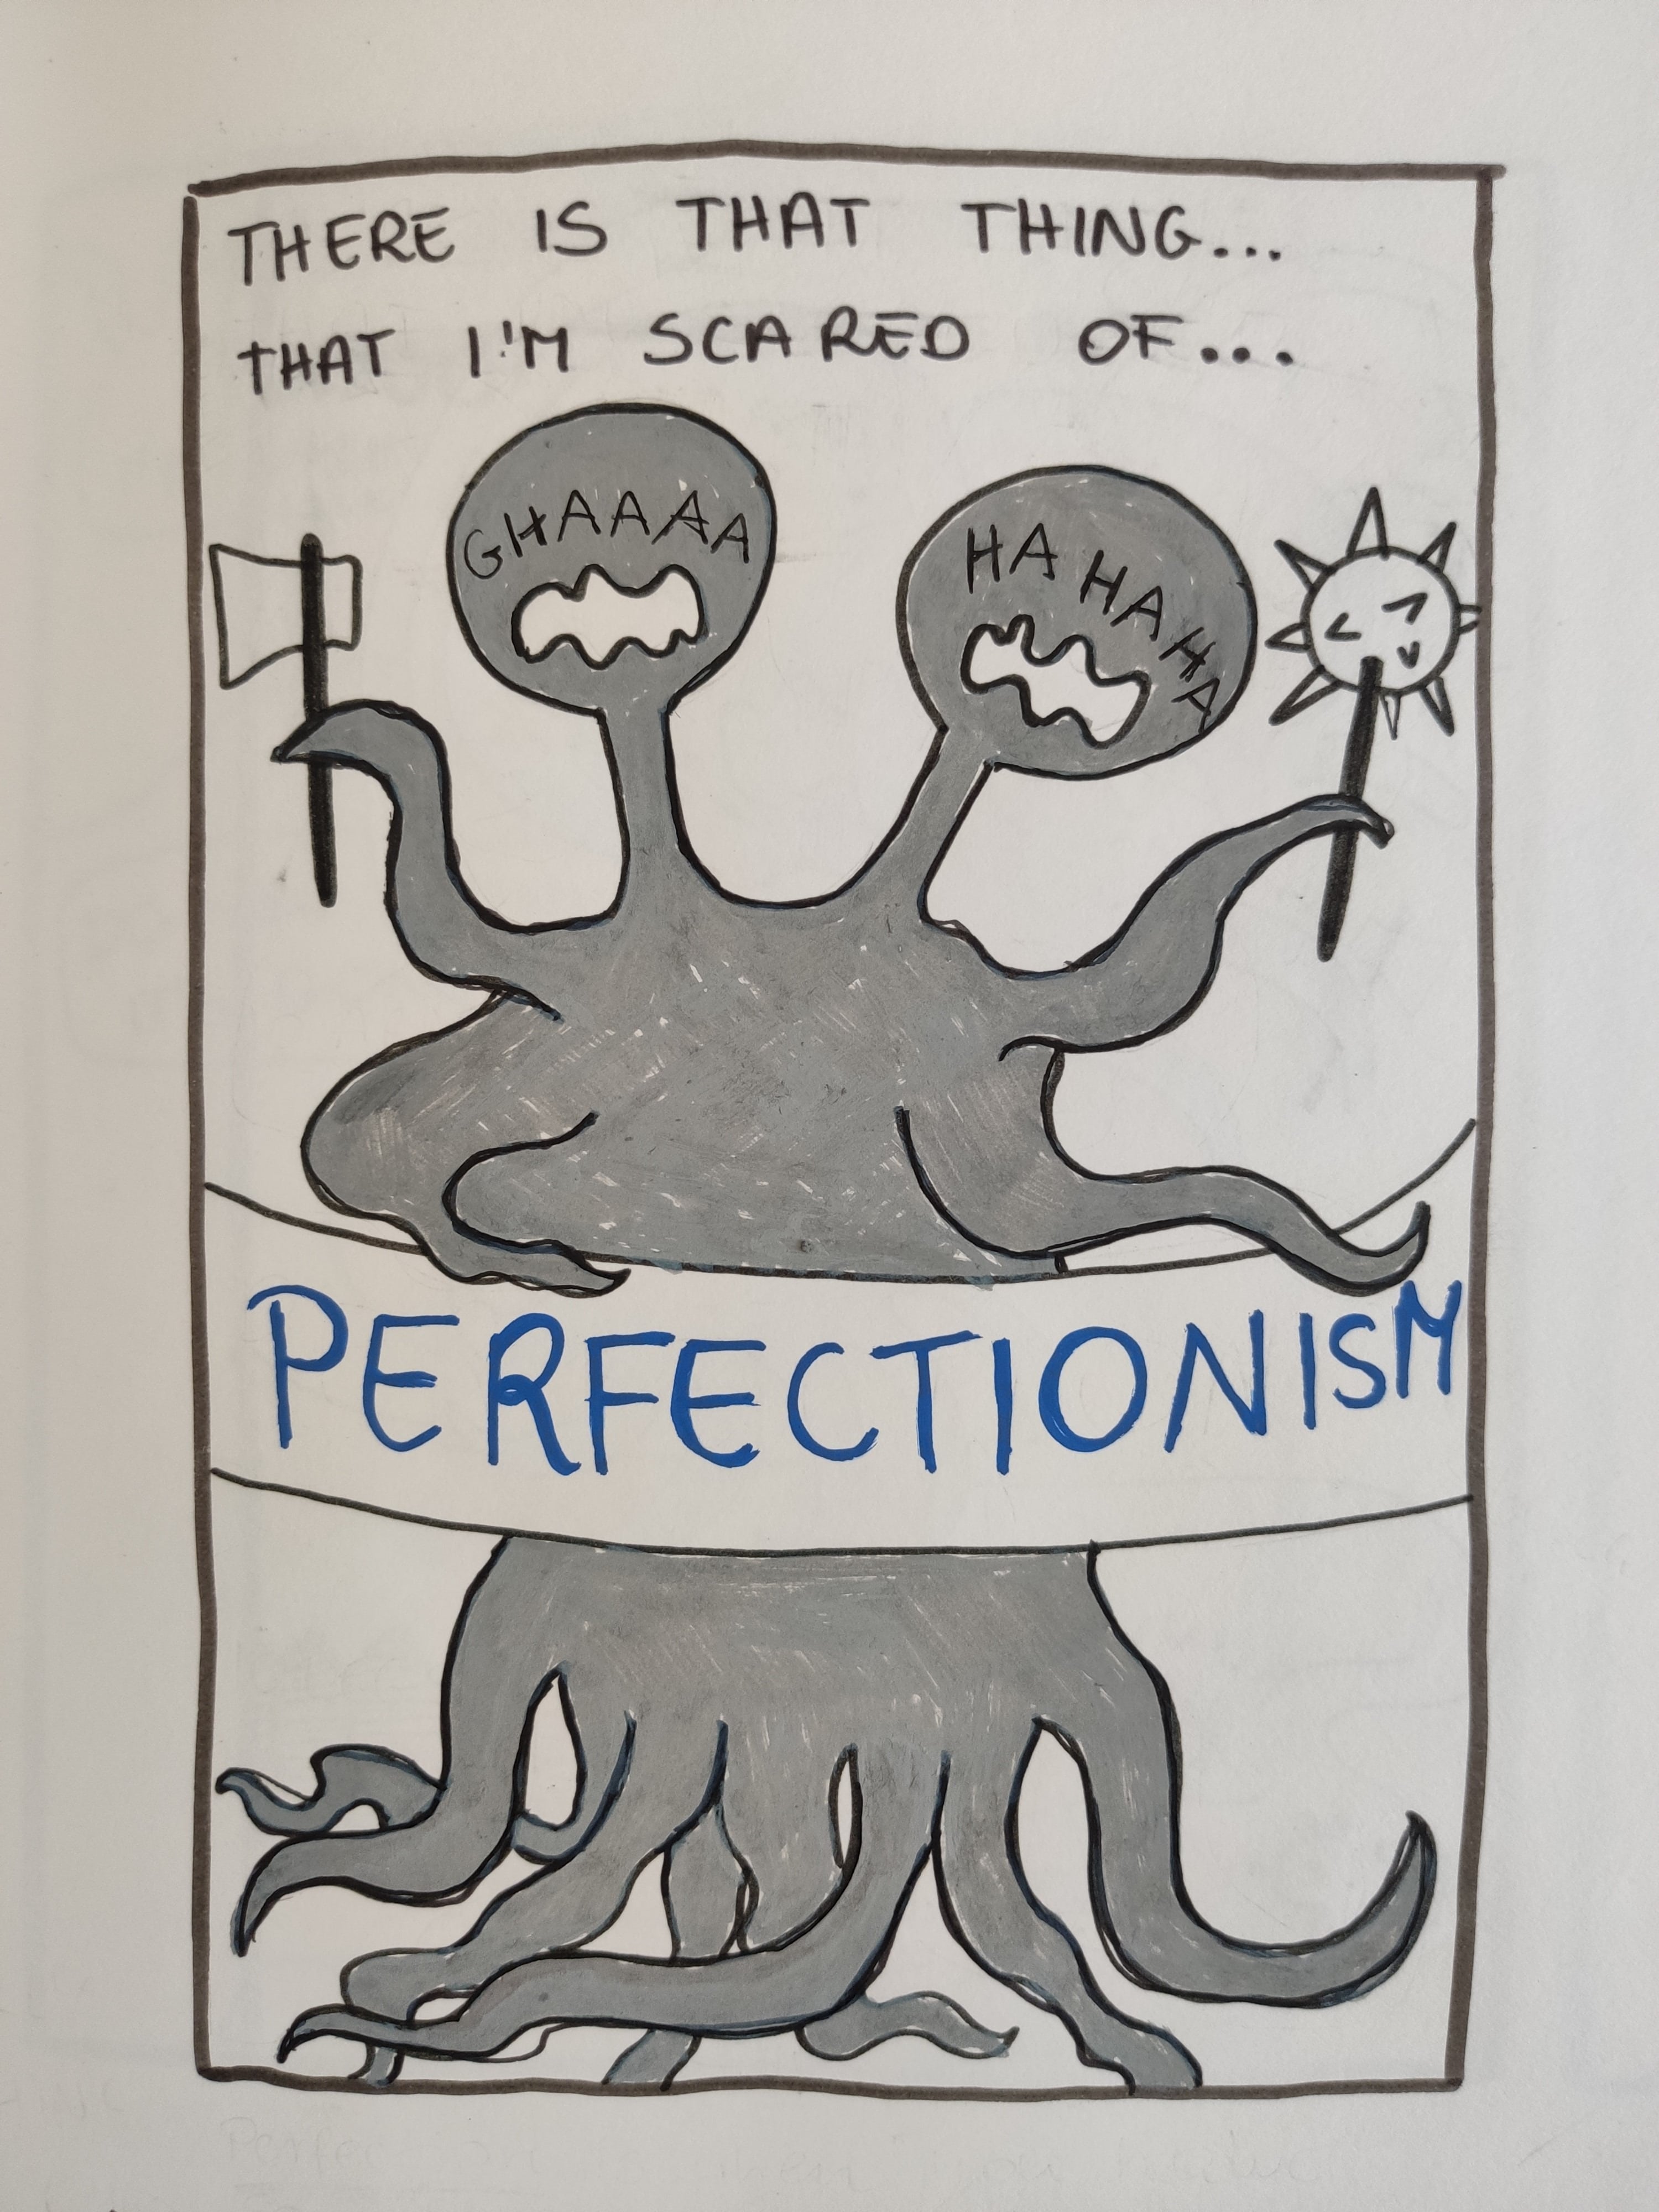 THERE IS THAT THING...
THAT I'M SCARED OF...
GHAAAAA
HA HA HA
PERFECTIONISM